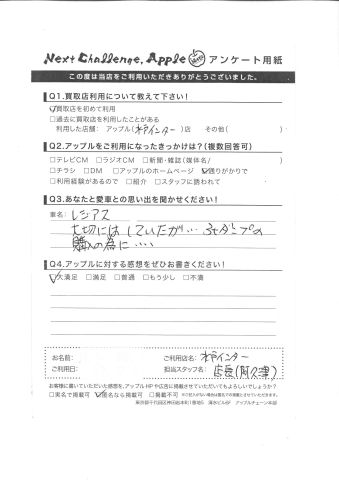 Next Challenge, Apple アンケート用紙
この度は当店をご利用いただきありがとうございました。
Q1.買取店利用について教えて下さい!
☑買取店を初めて利用
□過去に買取店を利用したことがある
利用した店舗: アップル(水戸インター)店 その他( )
Q2.アップルをご利用になったきっかけは?(複数回答可)
□テレビCM □ラジオCM □新聞・雑誌(媒体名/ )
□チラシ □DM □アップルのホームページ ☑通りがかりで
□利用経験があるので □紹介 □スタッフに誘われて
Q3.あなたと愛車との思い出を聞かせください!
車名: レジアス
大切にはしていたが… 3tダンプの
購入の為に‥‥
Q4.アップルに対する感想をぜひお書きください!
☑大満足 □満足 □普通 □もう少し □不満
お名前: ご利用店名: 水戸インター
ご利用日: 担当スタッフ名: 店長(阿久津)
お客様に書いていただいた感想を、アップルHPや広告に掲載させていただいてもよろしいでしょうか?
□実名で掲載可 ☑匿名なら掲載可 □掲載不可 ※ご記入がない場合は匿名での掲載とさせていただきます。
東京都千代田区神田岩本町1番地5 清水ビル8F アップルチェーン本部